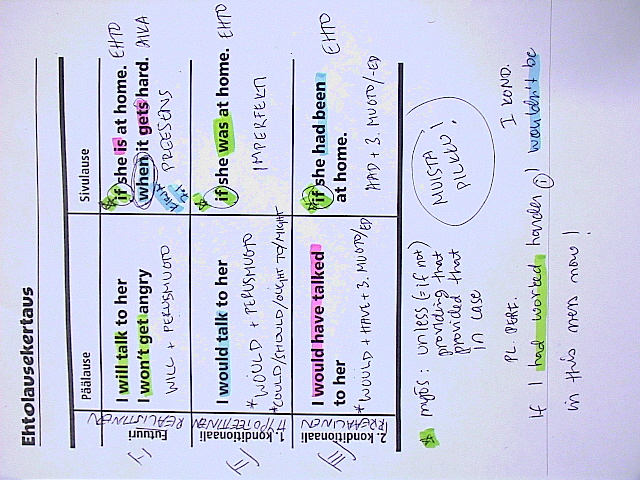 Ehtolausekertaus
Päälause Sivulause
I) Futuuri REALISTINEN
I will talk to her if she is at home. EHTO
I won't get angry when it gets hard. AIKA
WILL + PERUSMUOTO PREESENS
II) 1. konditionaali HYPOTEETTINEN
I would talk to her if she was at home. EHTO
*WOULD + PERUSMUOTO IMPERFEKTI
*COULD/SHOULD/OUGHT TO/MIGHT
III) 2. konditionaali IRREAALINEN
I would have talked if she had been EHTO
to her at home.
*WOULD + HAVE + 3. MUOTO/ED HAD + 3. MUOTO/-ED
MYÖS: unless (= if not)
providing that
provided that
in case
MUISTA
PILKKU!
PL. PERF. I KOND.
If I had worked harder, I wouldn't be
in this mess now!